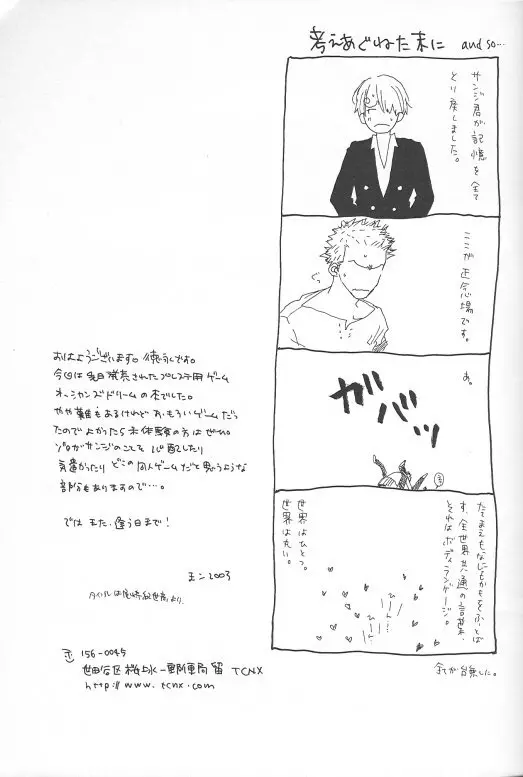 考えあぐねた末に and so…
サンジ君が記憶を全て
とり戻しました。
ここが正念場です。
あ。
ガバッ
たてまえもなにもかもをふっとば
す、全世界共通の言葉、
それはボディランゲージ。
世界はひとつ。
世界は丸い。
全てが台無しに。
おはようございます。徳川です。
今回は先日発売されたプレステ用ゲーム
オーシャンズドリームの本でした。
やや難もあるけれどおもろいゲームだっ
たのでよかったら未体験の方はぜひ。
ゾロがサンジのことを心配したり
気遣かったり どこの同人ゲームだと思うような
部分もありますので…。
では また、逢う日まで!
2003
タイトルは尾崎 より
156-0045
世田谷区桜上水一郵便局留 TCNX
http://www.tcnx.com